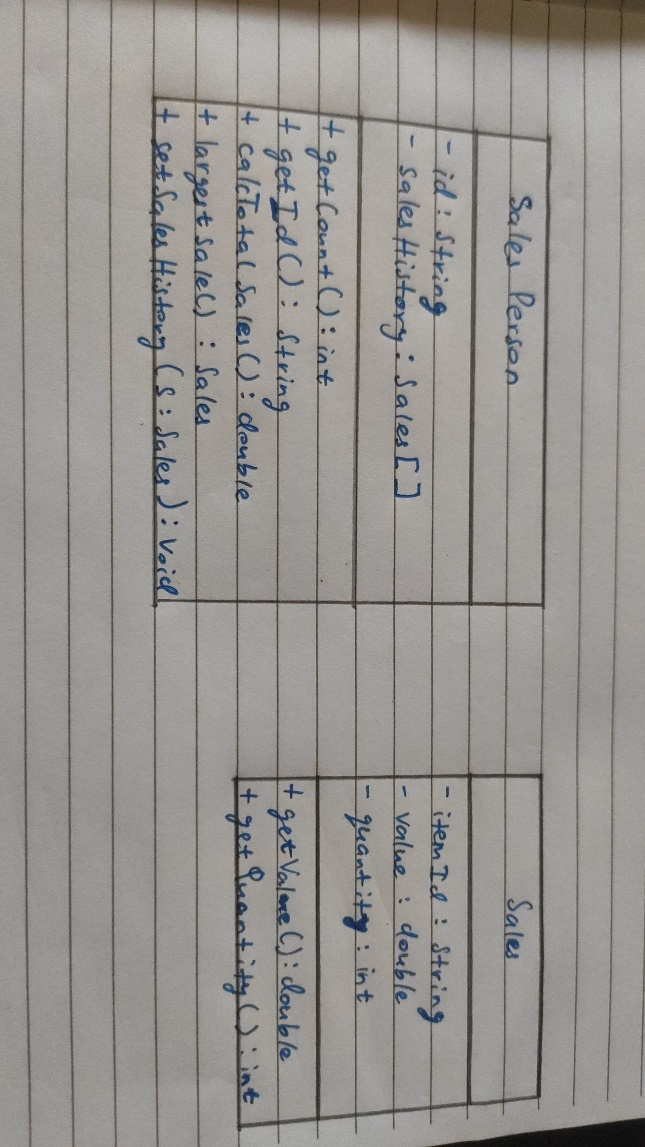 Sales Person
- id : String
- salesHistory : Sales[]
+ getCount() : int
+ getId() : String
+ calcTotalSales() : double
+ largestSale() : Sales
+ setSalesHistory (s : Sales) : void
Sales
- itemId : String
- value : double
- quantity : int
+ getValue() : double
+ getQuantity() : int